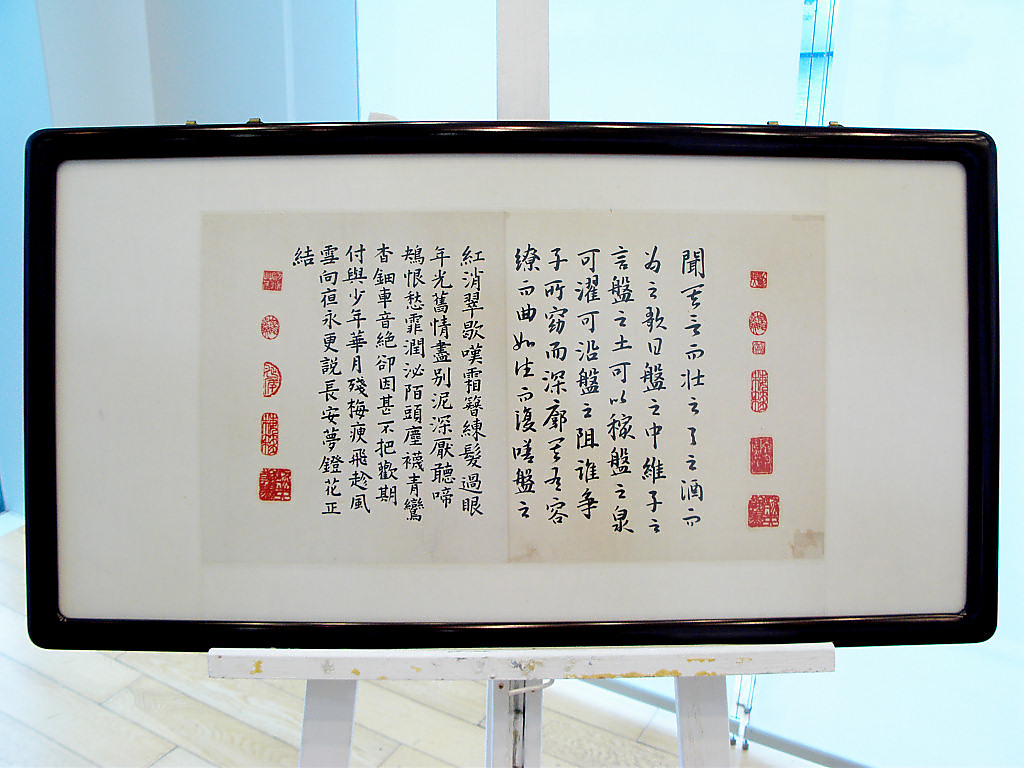 聞其言而壯之与之酒而
為之歌曰盤之中維子之
宮盤之土可以稼盤之泉
可濯可沿盤之阻誰爭
子所窈而深廓其有容
繚而曲如往而復嗟盤之
紅消翠歇嘆霜簪練髮過眼
年光舊情盡別泥深厭聽啼
鴂恨愁霏潤沁陌頭塵襪青鸞
杳鈿車音絕卻因甚不把歡期
付與少年華月殘梅瘦飛趁風
雪向夜永更說長安夢鐙花正
結